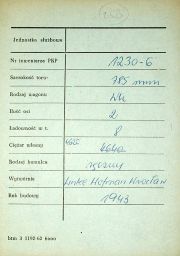 Jednostka służbowa
Nr inwentarza PKP 1230-6
Szerokość toru 785 mm
Rodzaj wagonu
Ilość osi 2
Ładowność w t. 8
Ciężar własny 4640
Rodzaj hamulca ręczny
Wytwórnia Linke Hofman Wrocław
Rok budowy 1943